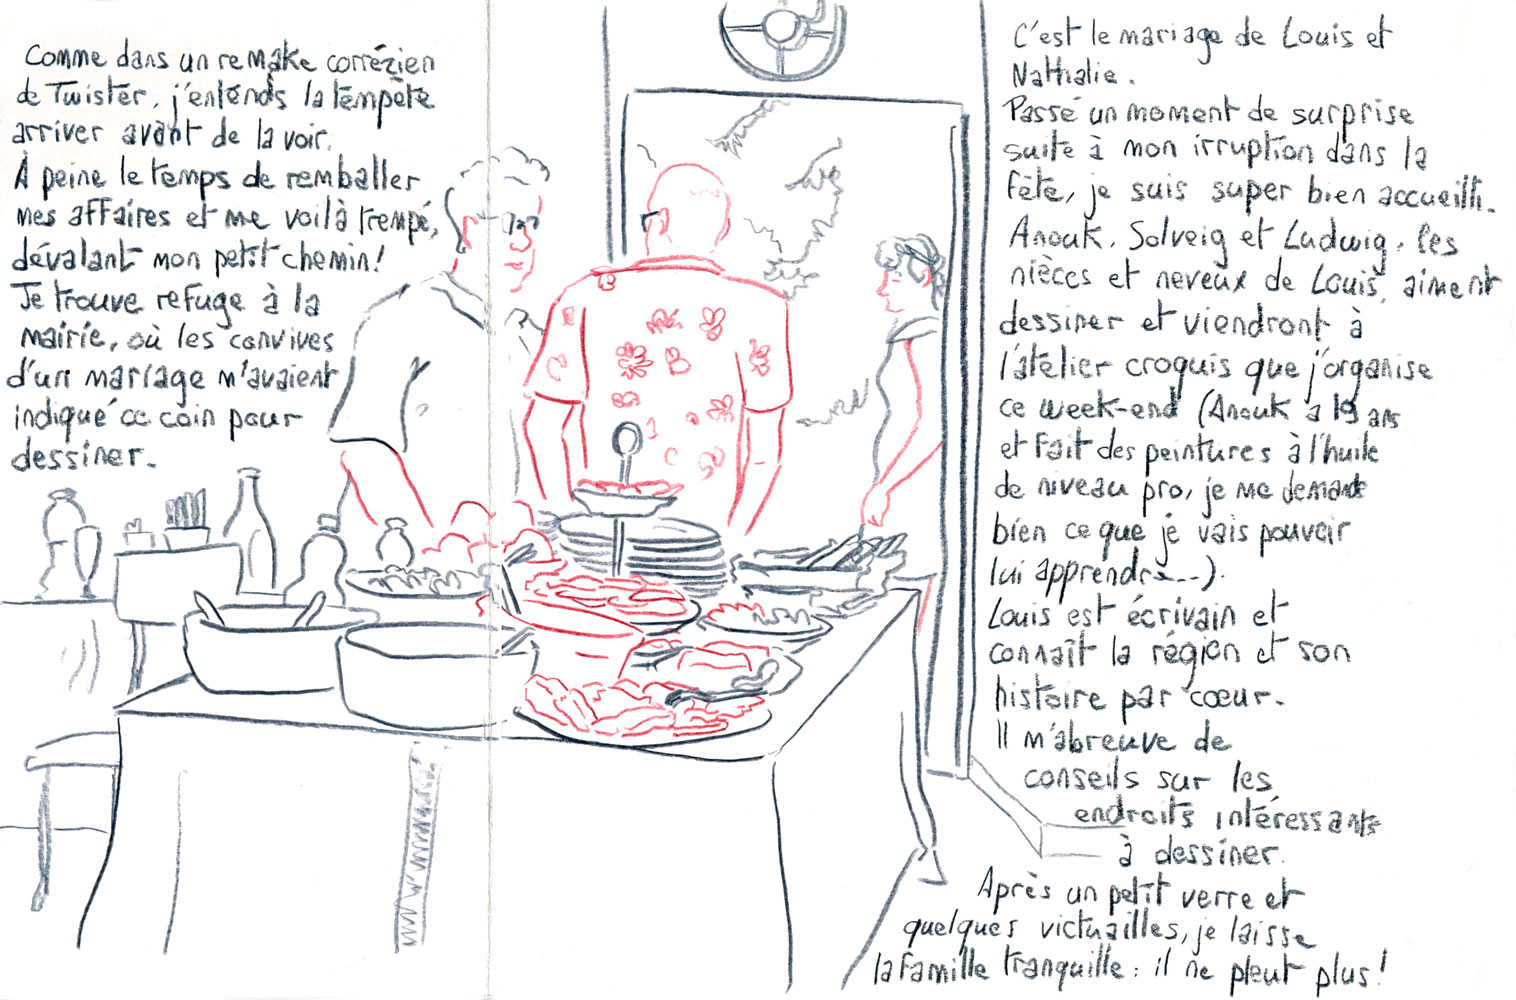 Comme dans un remake corrézien
de Twister, j'entends la tempête
arriver avant de la voir.
À peine le temps de remballer
mes affaires et me voilà trempé,
dévalant mon petit chemin!
Je trouve refuge à la
mairie, où les convives
d'un mariage m'avaient
indiqué ce coin pour
dessiner.
C'est le mariage de Louis et
Nathalie.
Passé un moment de surprise
suite à mon irruption dans la
fête, je suis super bien accueilli.
Anouk, Solveig et Ludwig, les
nièces et neveux de Louis, aiment
dessiner et viendront à
l'atelier croquis que j'organise
ce week-end (Anouk a 19 ans
et fait des peintures à l'huile
de niveau pro, je me demande
bien ce que je vais pouvoir
lui apprendre...).
Louis est écrivain et
connaît la région et son
histoire par cœur.
Il m'abreuve de
conseils sur les
endroits intéressants
à dessiner.
Après un petit verre et
quelques victuailles, je laisse
la famille tranquille : il ne pleut plus!